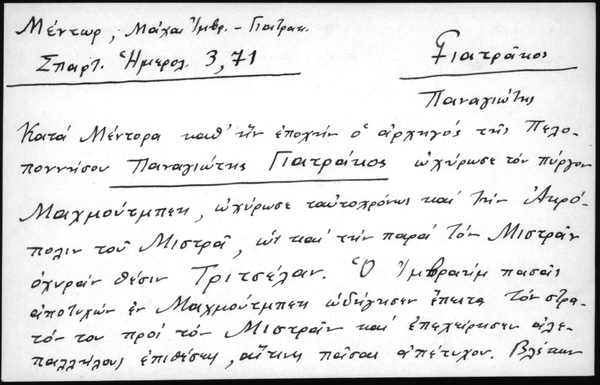 Μέντωρ, Μάχαι Ἰμβρ. - Γιατρακ.
Σπαρτ. Ἡμερολ. 3, 71
Γιατρᾶκος
Παναγιώτης
Κατά Μέντορα καθ' ἥν ἐποχήν ὁ ἀρχηγός τῆς Πελο-
ποννήσου Παναγιώτης Γιατράκος ὠχύρωσε τόν πύργον
Μαχμούτμπεη, ὠχύρωσε ταὐτοχρόνως καί τήν Ἀκρό-
πολιν τοῦ Μιστρᾶ, ὡς καί τήν παρά τόν Μιστρᾶν
ὀχυράν θέσιν Τριτσέλαν. Ὁ Ἰμβραήμ πασᾶς
ἀποτυχών ἐν Μαχμούτμπεη ὡδήγησεν ἔπειτα τόν στρα-
τόν του πρός τόν Μιστρᾶν καί ἐπεχείρησεν ἀλε-
παλλήλους ἐπιθέσεις, αἵτινες πᾶσαι ἀπέτυχον. Βλέπων